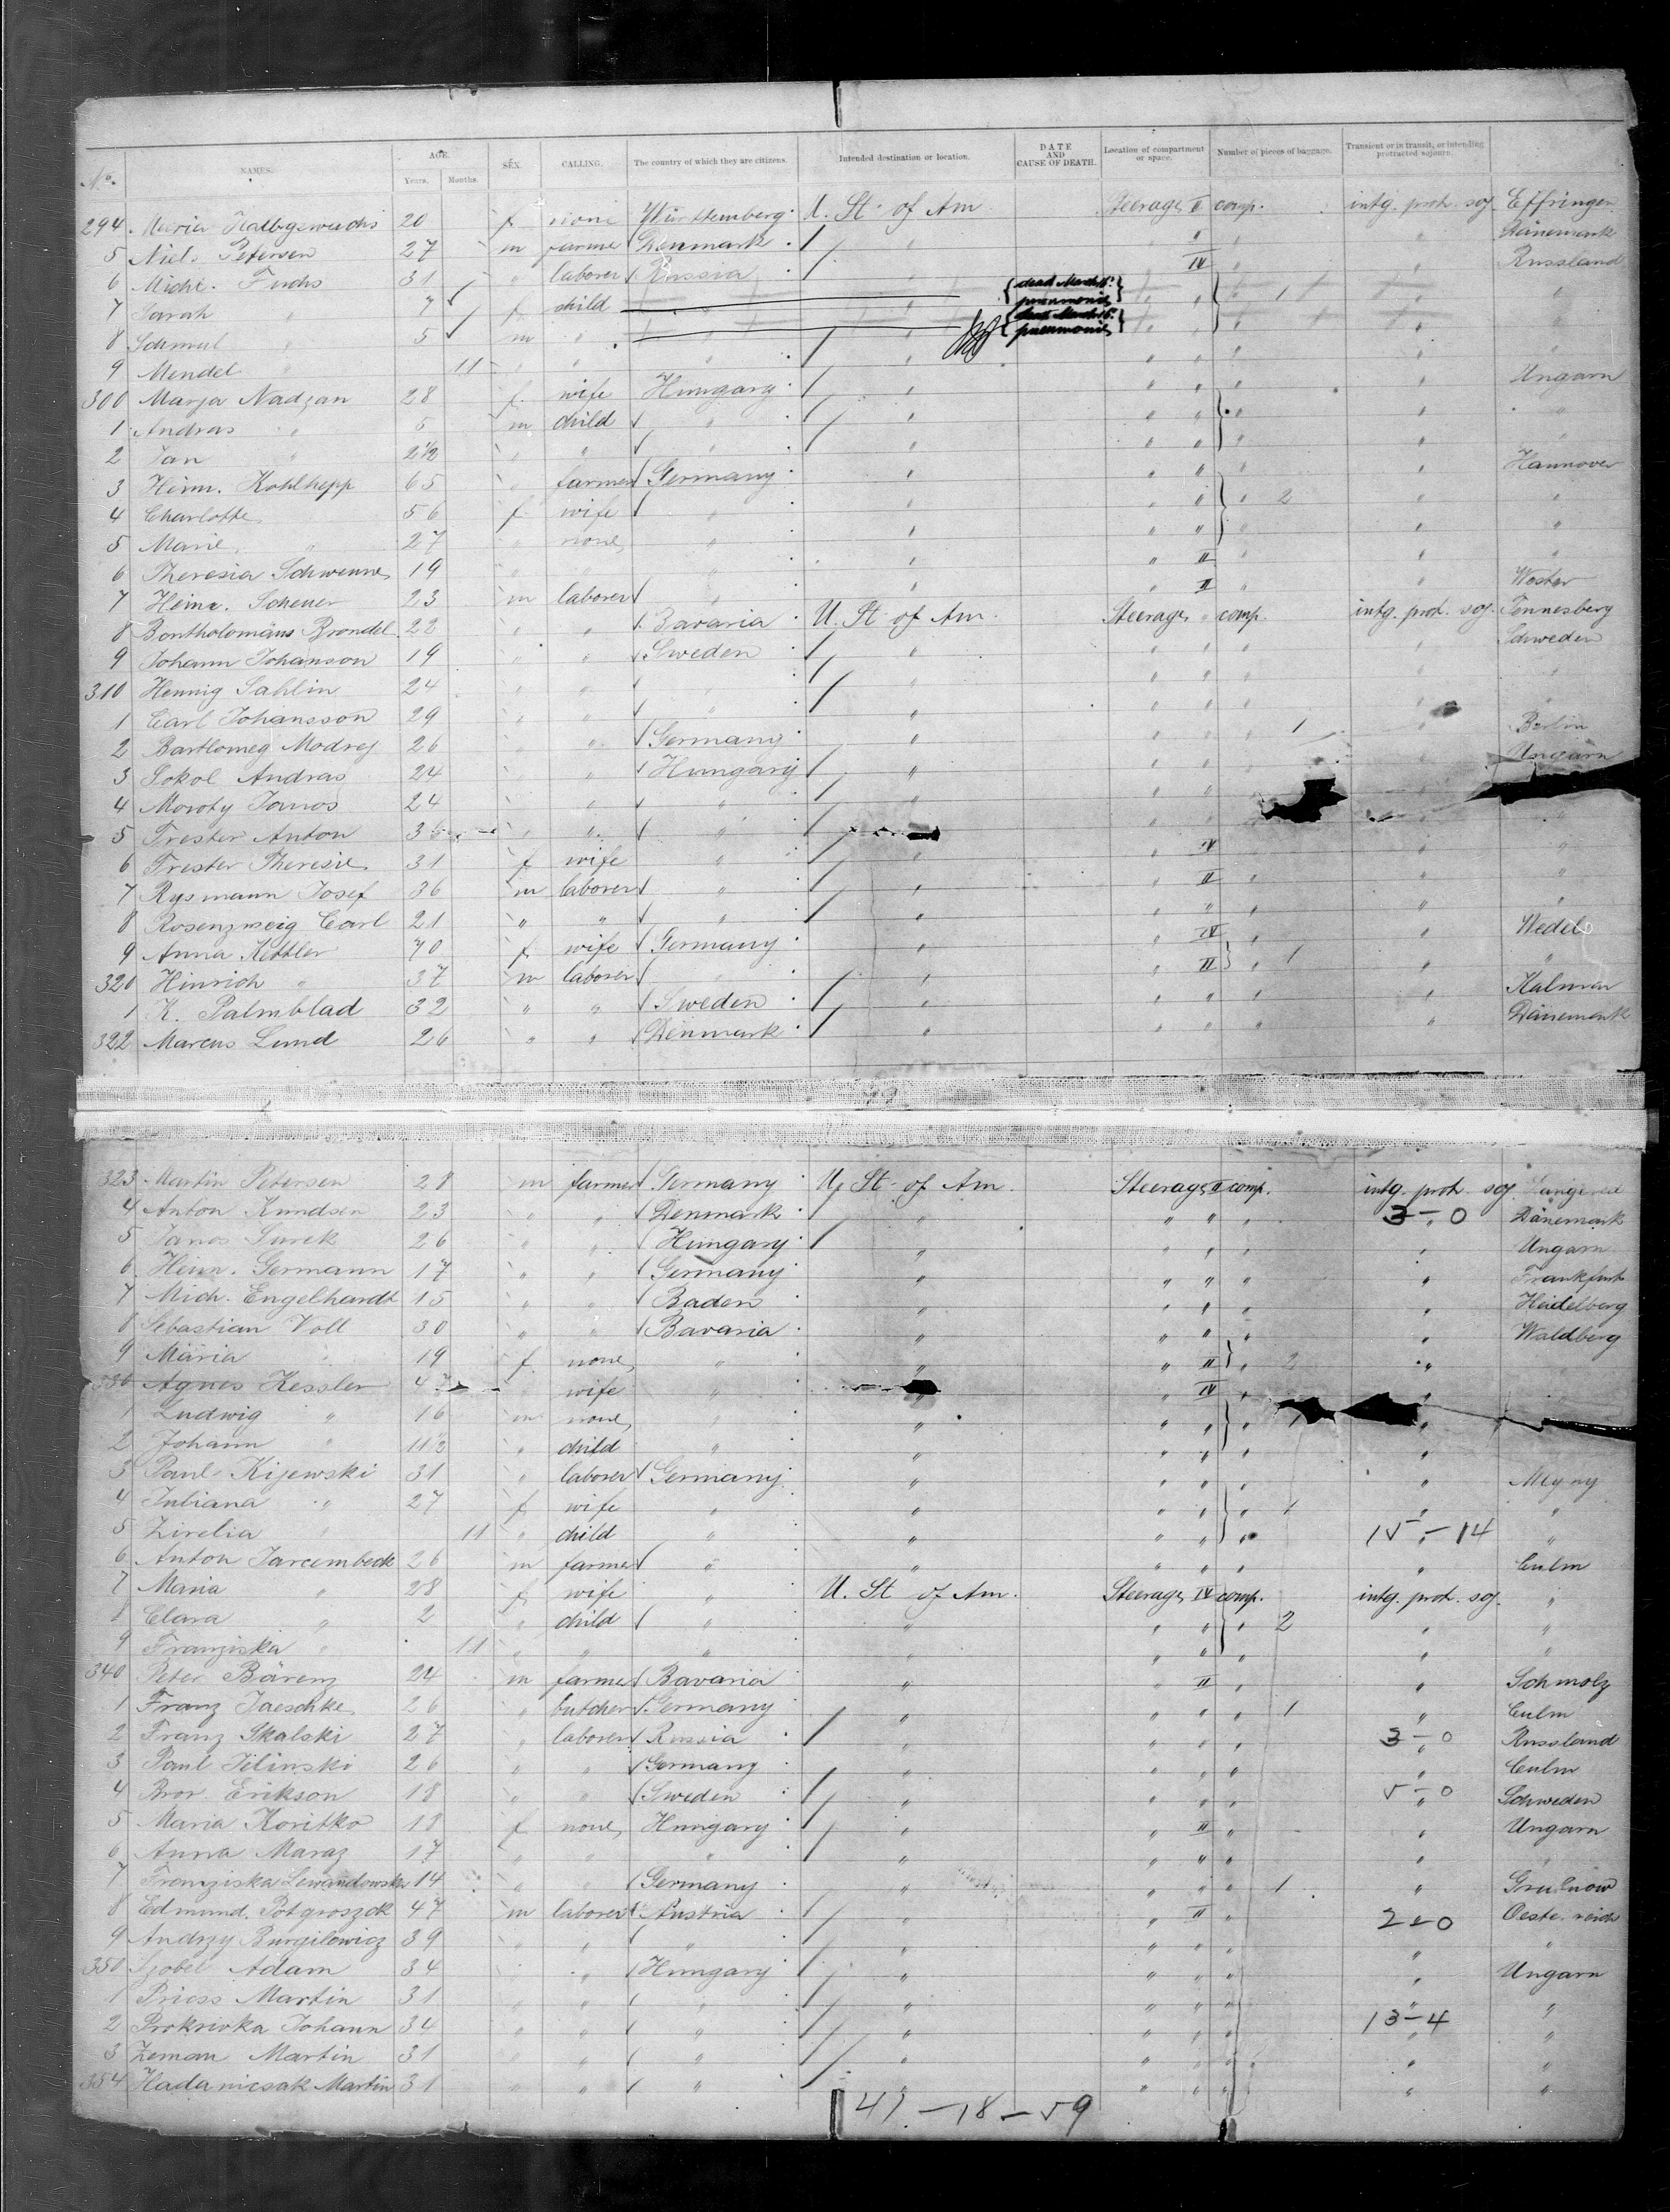 No. NAMES. AGE. Years, Months. SEX. CALLING. The country of which they are citizens. Intended destination or location. DATE AND CAUSE OF DEATH. Location of compartment or space. Number of pieces of baggage. Transient or in transit, or intending protracted sojourn.
294 Maria 20 f none Württemberg U. St. of Am Steerage II comp. intg. prot. soj. Effringen
5 Niels Petersen 27 m farmer Denmark " " " " Dänemark
6 Michl. Fuchs 31 " laborer Russia " " IV " " Russland
7 Sarah " 7 f child " {dead March 16. pneumonie} " " " 1 " "
8 Schmul " 5 m " " {dead March 16. pneumonie} " " " " "
9 Mendel " 11 " " " " " " " " "
300 Marja Nadzan 28 f. wife Hungary " " " " " Ungarn
1 Andras " 5 m child " " " " " " "
2 Jan " 2 1/2 " " " " " " " " "
3 Heinr. Kohlhepp 65 " farmer Germany " " " " " Hannover
4 Charlotte 56 f. wife " " " " " 2 " "
5 Marie " 27 " none " " " " " " "
6 Theresia Schwenne 19 " " " " " II " " "
7 Heinr. Scheuer 23 m laborer " " " II " " Wester
8 Bontholomäus Brondel 22 " " Bavaria U. St. of Am. Steerage " comp. intg. prot. soj. Tennesberg
9 Johann Johanson 19 " " Sweden " " " " " Schweden
310 Hennig Sahlin 24 " " " " " " " " "
1 Carl Johansson 29 " " " " " " " " "
2 Bartlomeg Modrej 26 " " Germany " " " " 1 " Berlin
3 Sokol Andras 24 " " Hungary " " " " " Ungarn
4 Moroty Janos 24 " " " " " " "
5 Trester Anton 36 " " " " " " " "
6 Trester Theresie 31 f wife " " " IV " " "
7 Rysmann Josef 36 m laborer " " " II " " "
8 Rosenzweig Carl 21 " " " " " " " " "
9 Anna Kettler 70 f wife Germany " " IV " " Wedel
320 Hinrich " 37 m laborer " " " II " 1 " "
1 K. Palmblad 32 " " Sweden " " " " " Kalmar
322 Marcus Lund 26 " " Denmark " " " " " Dänemark
323 Martin Petersen 28 m farmer Germany U. St. of Am. Steerage II comp. intg. prot. soj.
4 Anton Knudsen 23 " " Denmark " " " " 3 - 0 Dänemark
5 Janos Surek 26 " " Hungary " " " " " Ungarn
6 Heinr. Germann 17 " " Germany " " " " " Frankfurt
7 Mich. Engelhardt 15 " " Baden " " " " " Heidelberg
8 Sebastian Voll 30 " " Bavaria " " " " " Waldberg
9 Maria " 19 f. none " " " II " 2 "
330 Agnes Kessler 47 " wife " " " IV " "
1 Ludwig " 16 m none " " " " " 1 "
2 Johann " 11 1/2 " child " " " " " "
3 Paul Kijewski 31 " laborer Germany " " " " "
4 Juliana " 27 f. wife " " " " " 1 " "
5 Zirelia " 11 " child " " " " " 15 - 14 "
6 Anton Jarcembeck 26 m farmer " " " " " " Culm
7 Maria " 28 f. wife " U. St. of Am. Steerage IV comp. intg. prot. soj. "
8 Clara " 2 " child " " " " " 2 " "
9 Franziska " 11 " " " " " " " " "
340 Peter Bärenz 24 m farmer Bavaria " " II " " Schmolz
1 Franz Jaeschke 26 " butcher Germany " " " " 1 " Culm
2 Franz Skalski 27 " laborer Russia " " " " 3 - 0 Russland
3 Paul Jelinski 26 " " Germany " " " " " Culm
4 Bror. Erikson 18 " " Sweden " " " " 5 - 0 Schweden
5 Maria Koritko 18 f none Hungary " " II " " Ungarn
6 Anna Maraz 17 " " " " " " " " "
7 Franziska Lewandowska 14 " " Germany " " " " 1 "
8 Edmund Potgroszek 47 m laborer Austria " " II " 2 - 0 Oesterreich
9 Andrzy Burgilowicz 39 " " " " " " " " "
350 Szobel Adam 34 " " Hungary " " " " " Ungarn
1 Priess Martin 31 " " " " " " " " "
2 Prokrivka Johann 34 " " " " " " " 13 - 4 "
3 Zeman Martin 31 " " " " " " " " "
354 Hadanicsak Martin 31 " " " " " " " " "
41 - 18 - 59